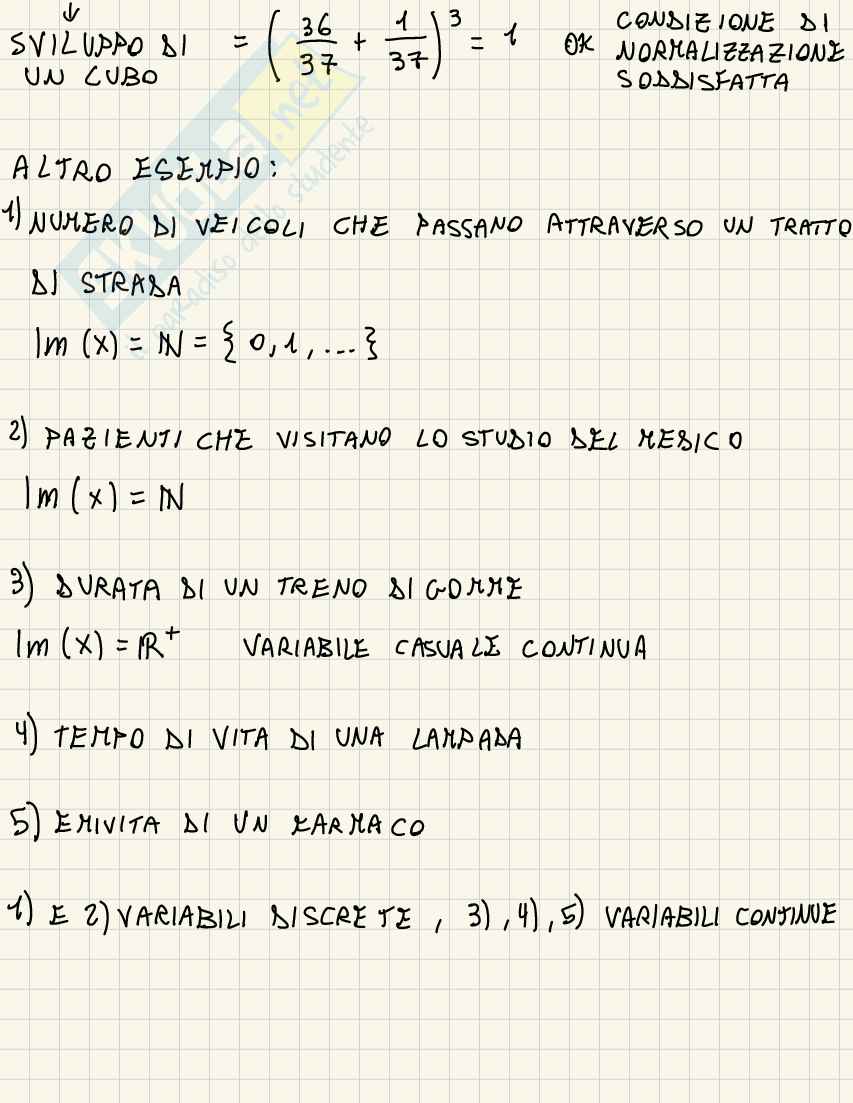 ↓
SVILUPPO DI UN CUBO = (36/37 + 1/37)³ = 1 OK CONDIZIONE DI NORMALIZZAZIONE SODDISFATTA
ALTRO ESEMPIO:
1) NUMERO DI VEICOLI CHE PASSANO ATTRAVERSO UN TRATTO
DI STRADA
Im (X) = ℕ = { 0, 1, ... }
2) PAZIENTI CHE VISITANO LO STUDIO DEL MEDICO
Im (X) = ℕ
3) DURATA DI UN TRENO DI GOMME
Im (X) = ℝ⁺ VARIABILE CASUALE CONTINUA
4) TEMPO DI VITA DI UNA LAMPADA
5) EMIVITA DI UN FARMACO
1) E 2) VARIABILI DISCRETE , 3), 4), 5) VARIABILI CONTINUE
SKUOLA.net
il paradiso dello studente